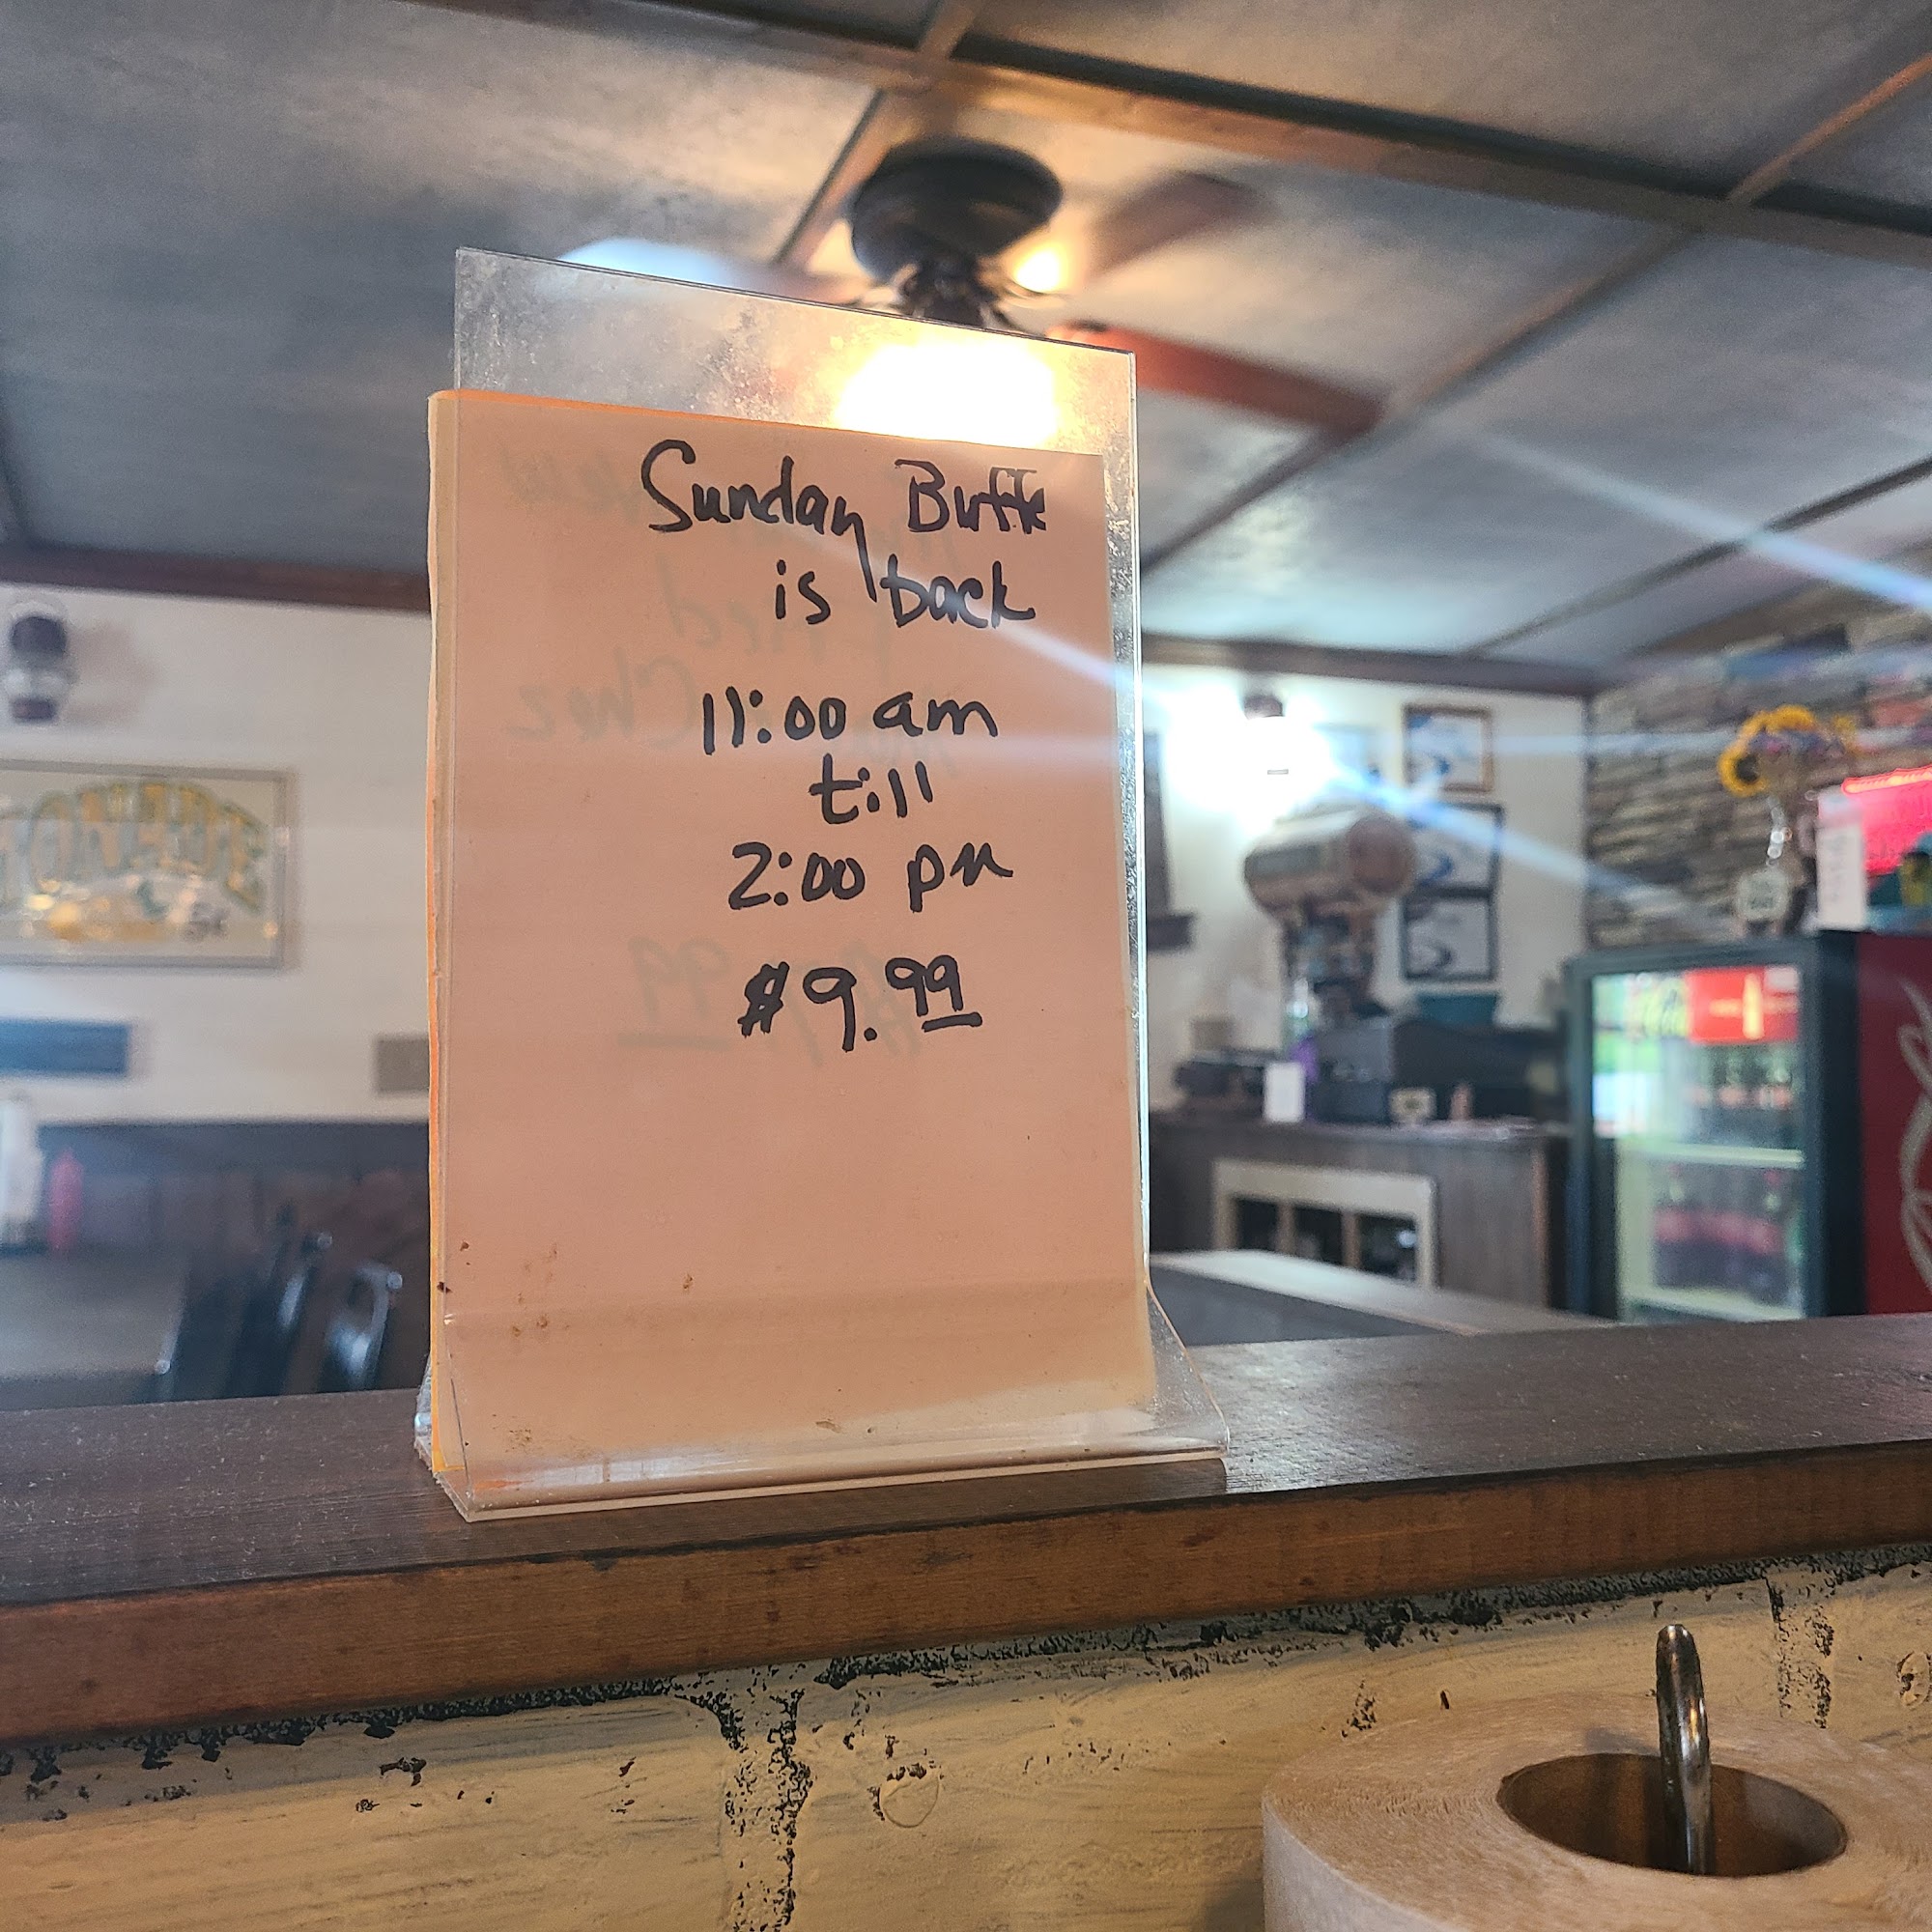 Sunday Buffe
is back
11:00 am
till
2:00 pm
$9.99